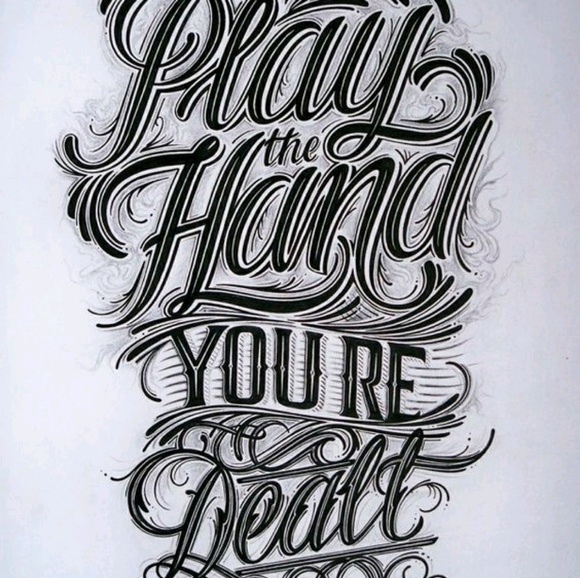 Play
the
Hand
YOU'RE
Dealt